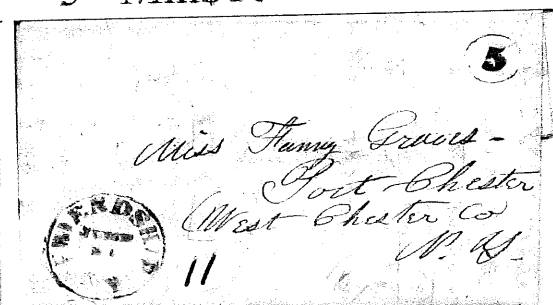 5
Miss Fanny Graves -
Port Chester
(West Chester Co
N. Y.
FRIENDSHIP
11